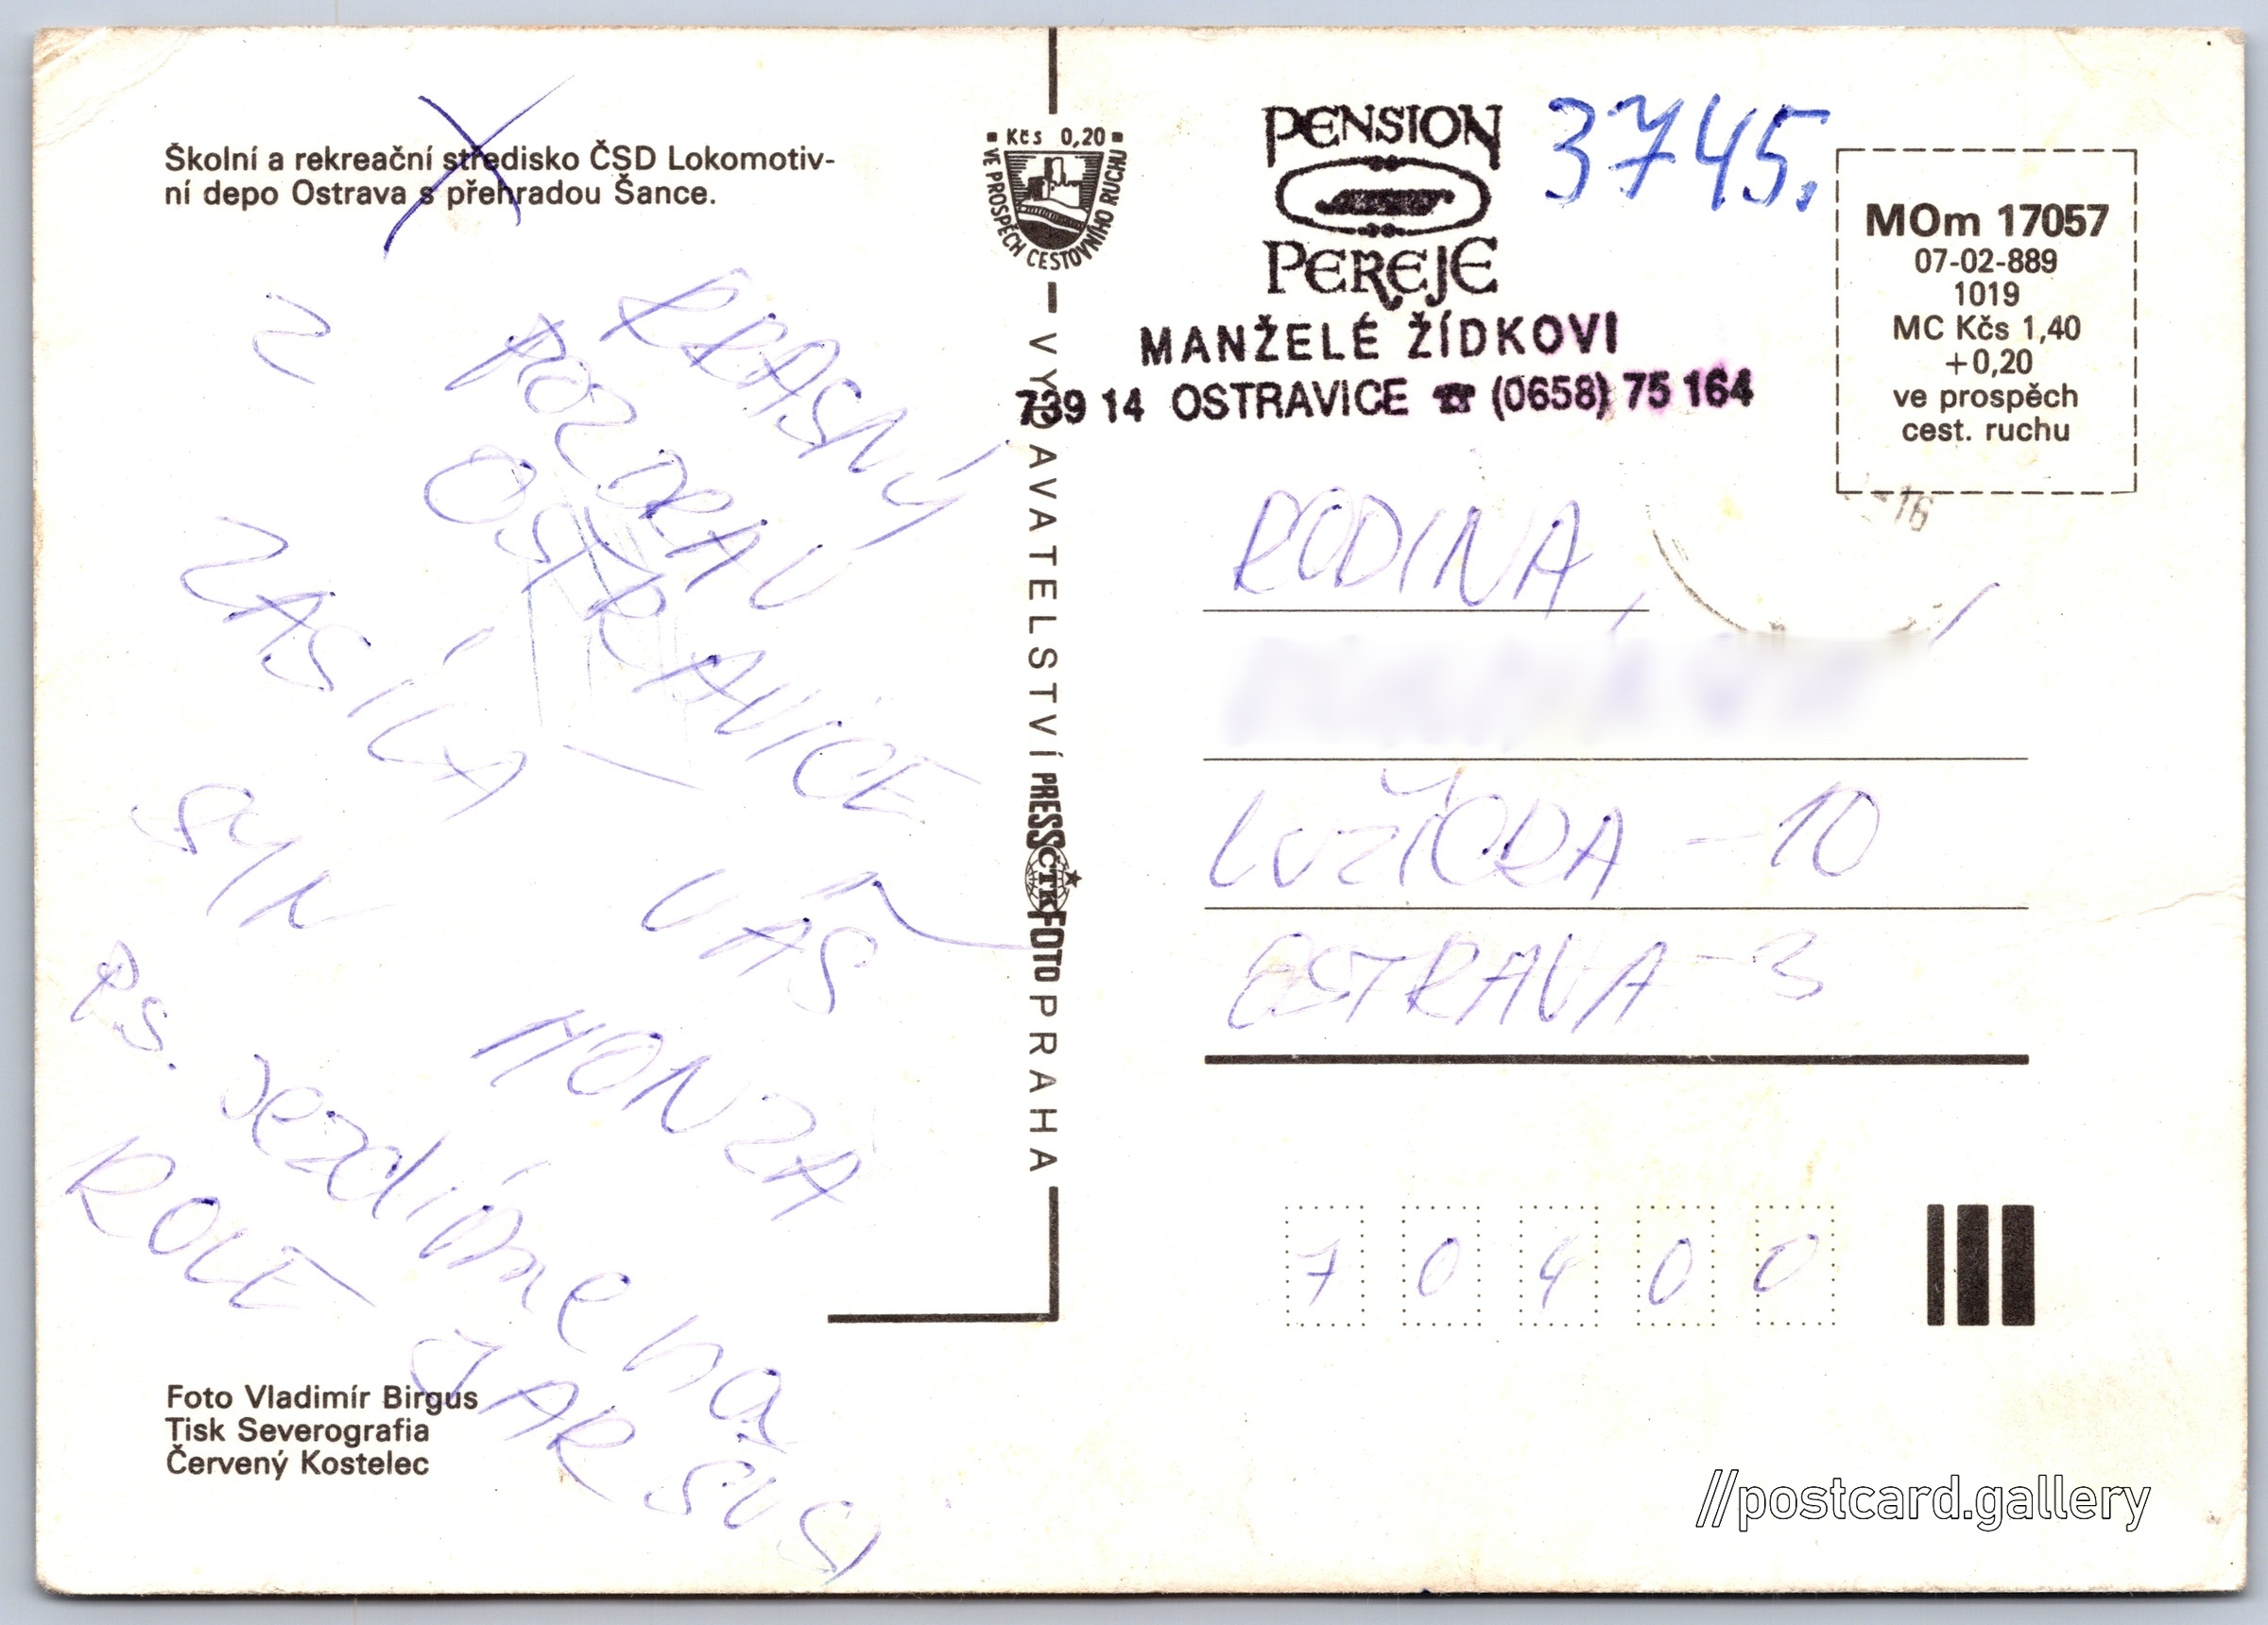 Školní a rekreační středisko ČSD Lokomotiv-
ní depo Ostrava s přehradou Šance.
KRÁSNÝ
POZDRAV
Z OSTRAVICE
ZASÍLÁ
VÁŠ
SYN HONZA
PS. Jezdíme na
KOLE
Foto Vladimír Birgus
Tisk Severografia
Červený Kostelec
Kčs 0,20
VE PROSPĚCH CESTOVNÍHO RUCHU
VYDAVATELSTVÍ PRESSFOTO PRAHA
ČTK
PENSION
PEREJE
3745.
MANŽELÉ ŽÍDKOVI
739 14 OSTRAVICE ☎ (0658) 75 164
MOm 17057
07-02-889
1019
MC Kčs 1,40
+0,20
ve prospěch
cest. ruchu
-16
RODINA
LUŽICKÁ - 10
OSTRAVA - 3
70400
//postcard.gallery